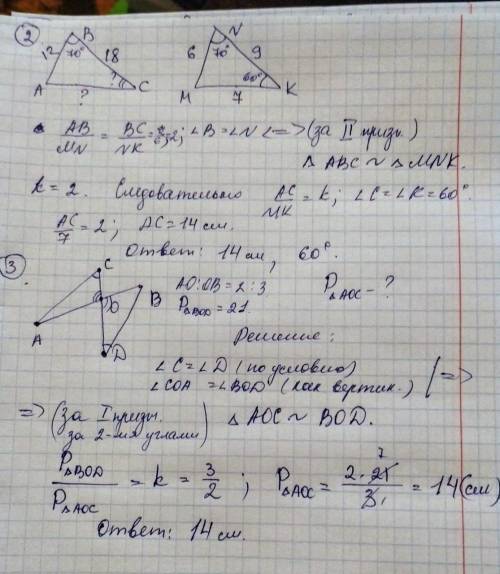 2
B
12
70°
18
?
A
?
C
N
6
70°
9
60°
M
7
K
AB/MN = BC/NK = 2; ∠B = ∠N <=> (за II призн.)
Δ ABC ~ Δ MNK.
k = 2. Следовательно AC/MK = k; ∠C = ∠K = 60°
AC/7 = 2; AC = 14 см.
Ответ: 14 см, 60°.
3
C
O
B
A
D
AO:OB = 2:3
P△AOC - ?
P△BOD = 21.
Решение:
∠C = ∠D (по условию)
∠COA = ∠BOD (как вертик.) | =>
=> (за I призн. за 2-мя углами) Δ AOC ~ BOD.
P△BOD/P△AOC = k = 3/2; P△AOC = 2·21/3 = 14 (см)
7
1
Ответ: 14 см.